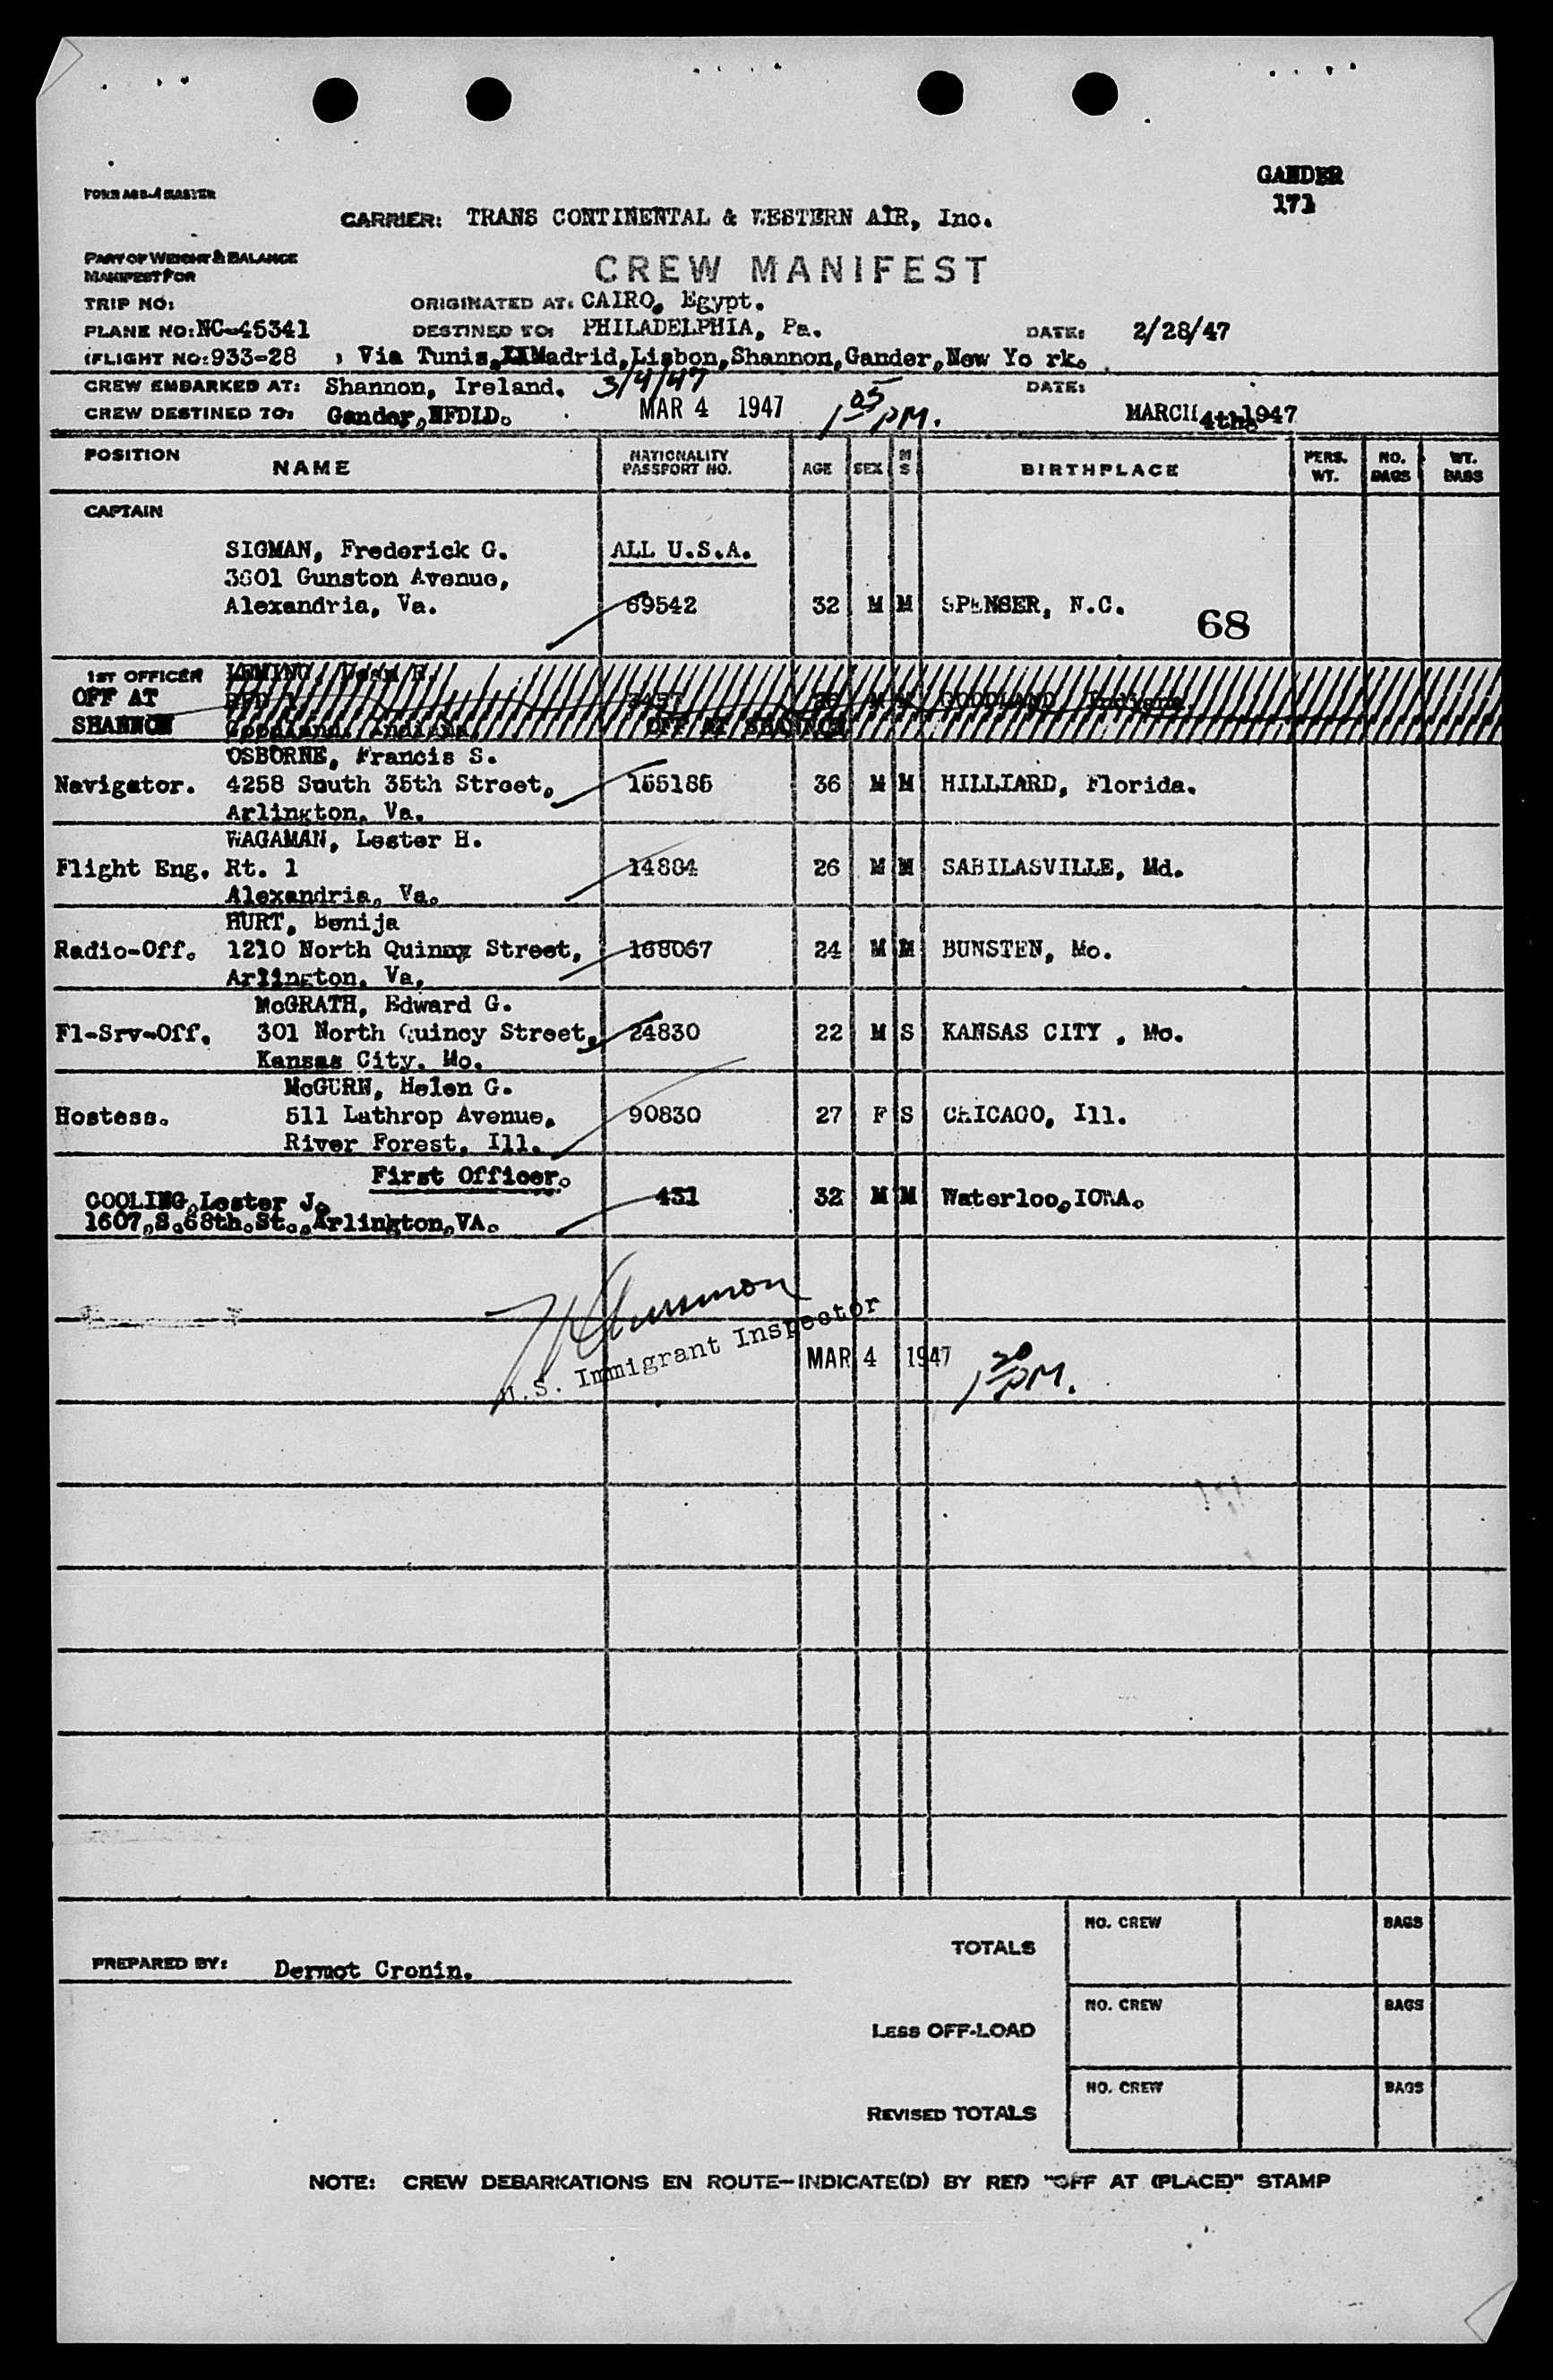 GANDER
171
FORM ACD-4 MASTER
CARRIER: TRANS CONTINENTAL & WESTERN AIR, Inc.
PART OF WEIGHT & BALANCE
MANIFEST FOR
CREW MANIFEST
TRIP NO: ORIGINATED AT: CAIRO, Egypt.
PLANE NO: NC-45341 DESTINED TO: PHILADELPHIA, Pa. DATE: 2/28/47
(FLIGHT NO: 933-28 , Via Tunis, XXMadrid, Lisbon, Shannon, Gander, New Yo rk.
CREW EMBARKED AT: Shannon, Ireland. 3/4/47 DATE:
CREW DESTINED TO: Gander, NFDLD. MAR 4 1947 1 05 PM. MARCH 4th. 1947
POSITION NAME NATIONALITY PASSPORT NO. AGE SEX M S BIRTHPLACE PERS. WT. NO. BAGS WT. BAGS
CAPTAIN
SIGMAN, Frederick G. ALL U.S.A.
3601 Gunston Avenue,
Alexandria, Va. 69542 32 M M SPENSER, N.C. 68
1ST OFFICER LEMING, Dean R.
OFF AT RFD 1 36 M M GOODLAND Indiana.
SHANNON Goodland, Indiana. OFF AT SHANNON
OSBORNE, Francis S.
Navigator. 4258 South 35th Street, 155185 36 M M HILLIARD, Florida.
Arlington, Va.
WAGAMAN, Lester H.
Flight Eng. Rt. 1 14884 26 M M SABILASVILLE, Md.
Alexandria, Va.
HURT, Benija
Radio-Off. 1210 North Quinxy Street, 168067 24 M M BUNSTEN, Mo.
Arlington, Va.
McGRATH, Edward G.
Fl-Srv-Off. 301 North Quincy Street, 24830 22 M S KANSAS CITY , Mo.
Kansas City, Mo.
McGURN, Helen G.
Hostess. 511 Lathrop Avenue, 90830 27 F S CHICAGO, Ill.
River Forest, Ill.
First Officer.
COOLING, Lester J. 431 32 M M Waterloo, IOWA.
1607, S. 68th. St., Arlington, VA.
U.S. Immigrant Inspector
MAR 4 1947 1 20 PM.
NO. CREW BAGS
TOTALS
PREPARED BY: Dermot Cronin.
NO. CREW BAGS
LESS OFF-LOAD
NO. CREW BAGS
REVISED TOTALS
NOTE: CREW DEBARKATIONS EN ROUTE—INDICATE(D) BY RED "OFF AT (PLACE)" STAMP